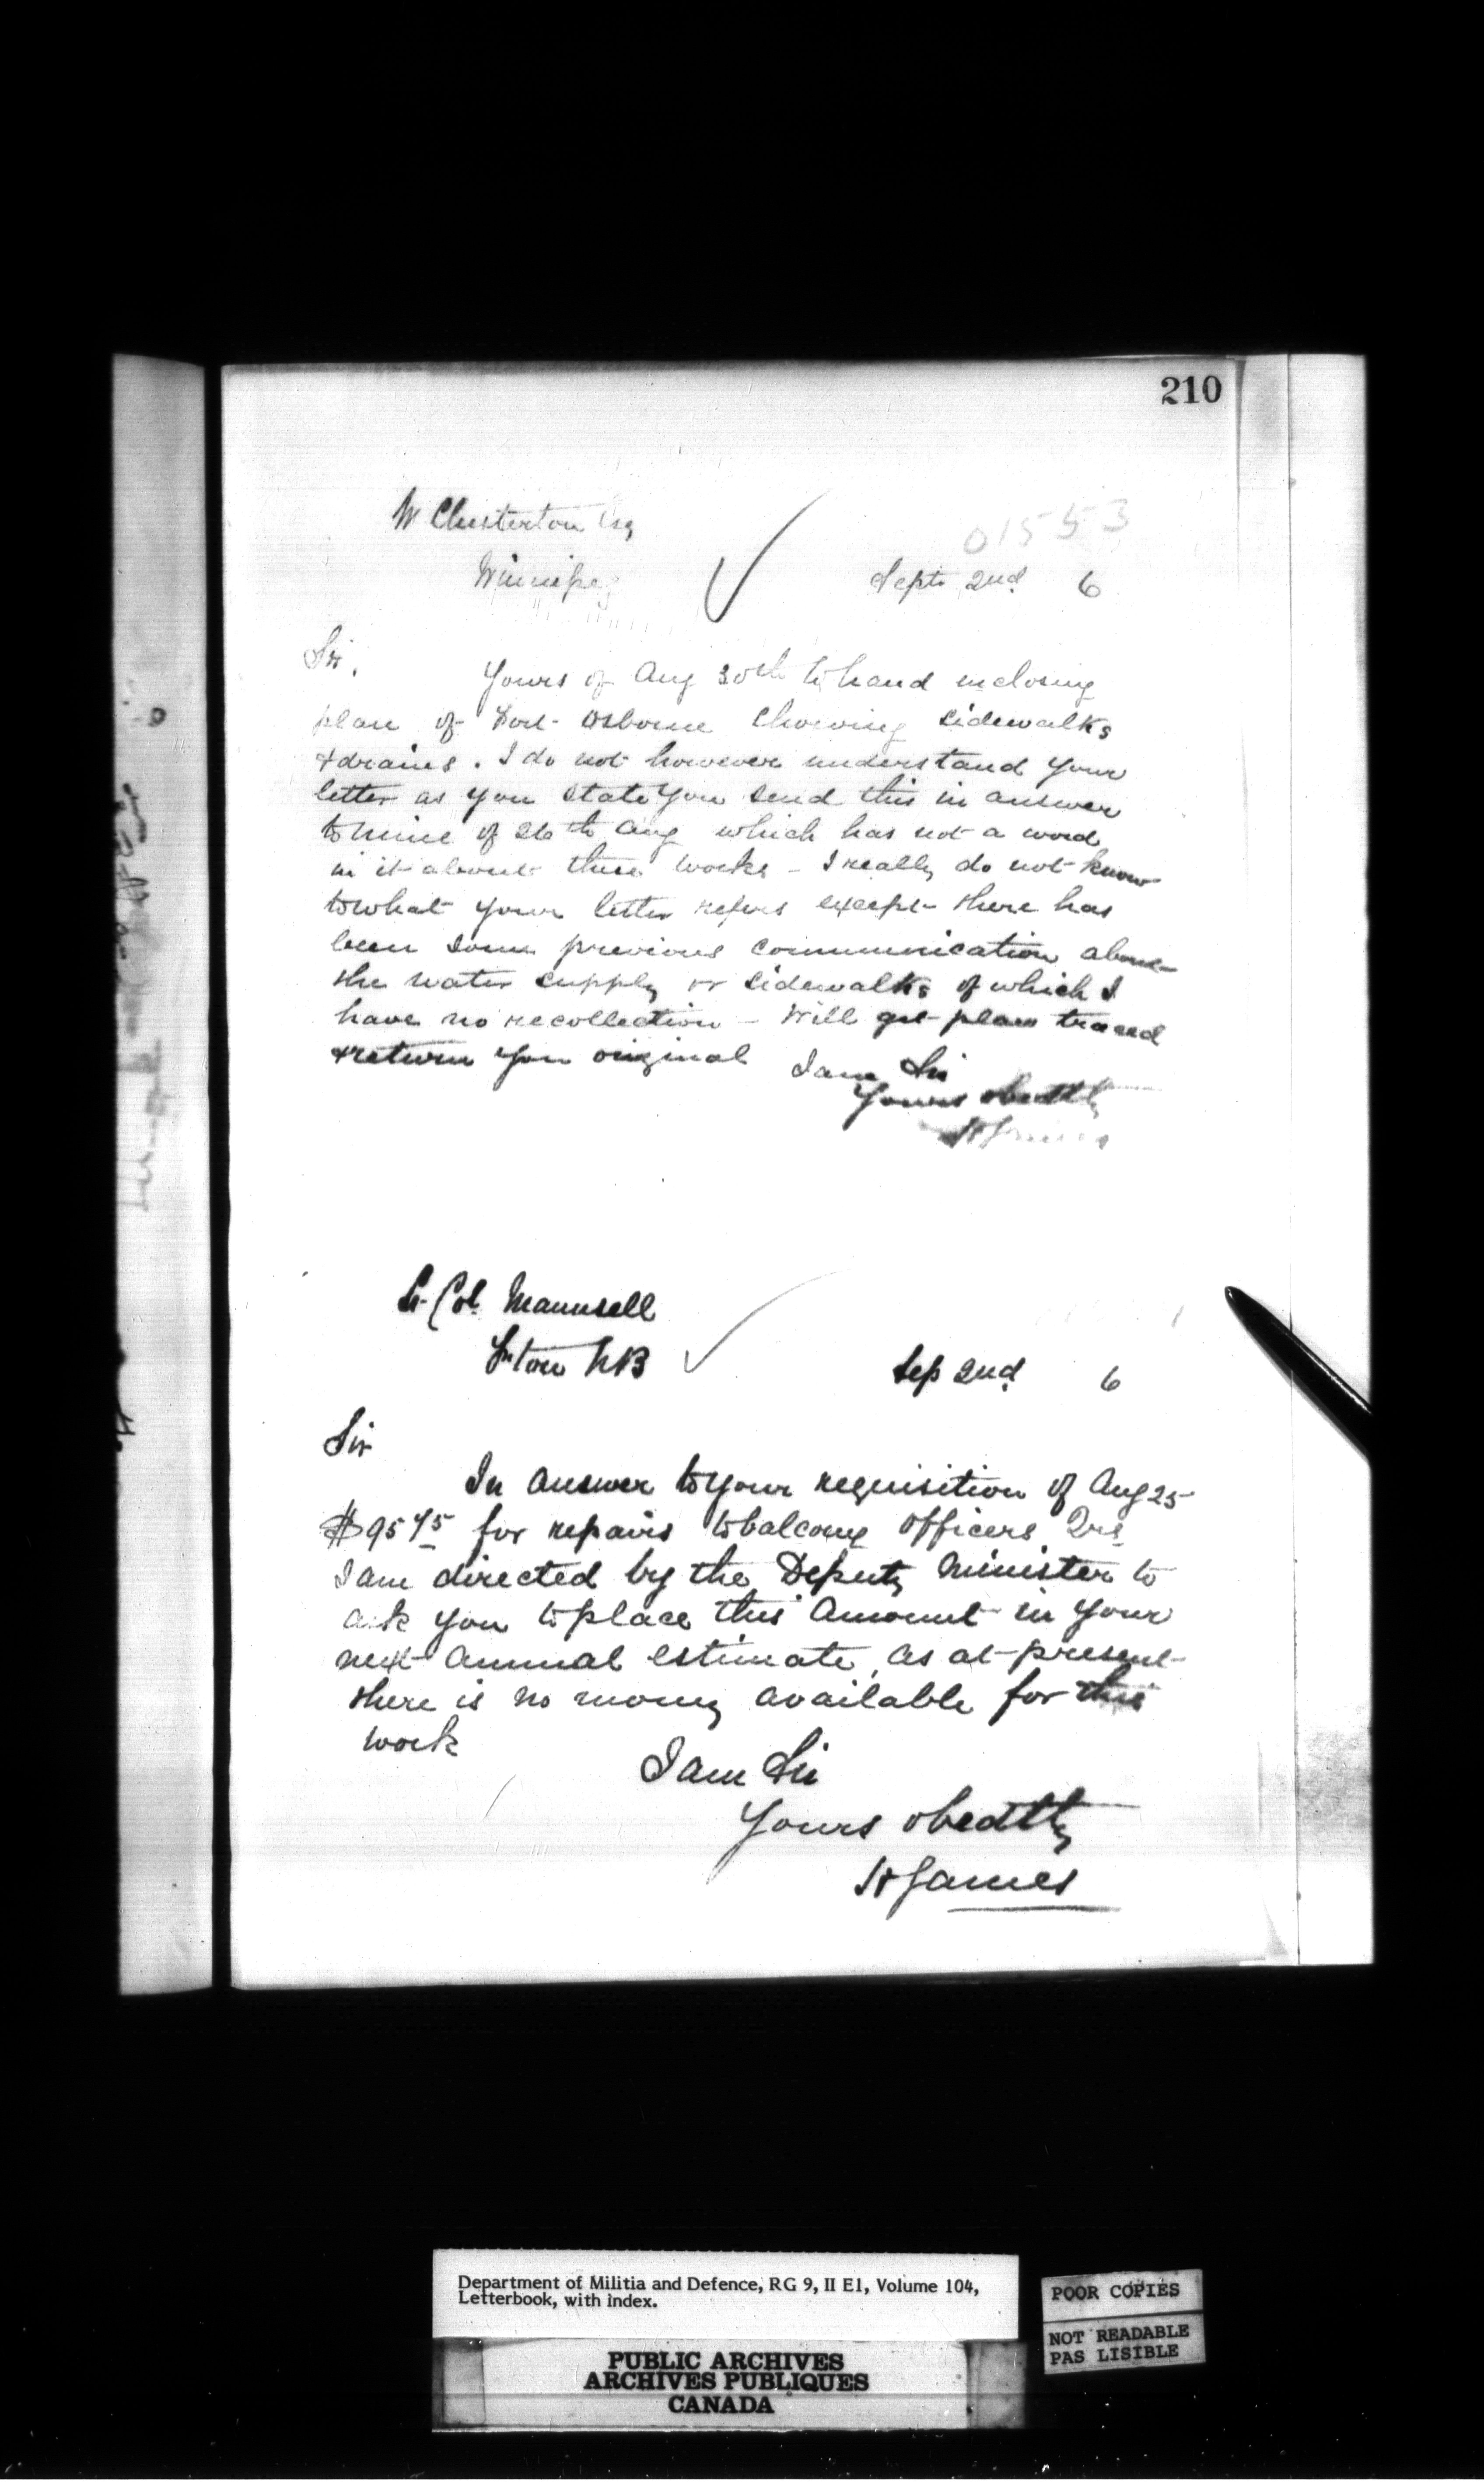 210
W Chesterton Esq
01553
Winnipeg
Septr 2nd 6
Sir,
Yours of Aug 30th to hand inclosing
plan of Fort Osborne showing sidewalks
& drains. I do not however understand your
letter as you state you send this in answer
to mine of 26th Aug which has not a word
in it about these works - I really do not know
to what your letter refers except there has
been some previous communication about
the water supply or sidewalks of which I
have no recollection - Will get plan traced
& return you original
I am Sir
Yours obedtly
H James
Lt. Col. Maunsell
Fr'ton NB
Sep 2nd 6
Sir
In answer to your requisition of Aug 25
$95 75 for repairs to balcony officers Qrs
I am directed by the Deputy Minister to
ask you to place this amount in your
next annual estimate, as at present
there is no money available for this
work
I am Sir
Yours obedtly
H James
Department of Militia and Defence, RG 9, II E1, Volume 104,
Letterbook, with index.
POOR COPIES
NOT READABLE
PAS LISIBLE
PUBLIC ARCHIVES
ARCHIVES PUBLIQUES
CANADA